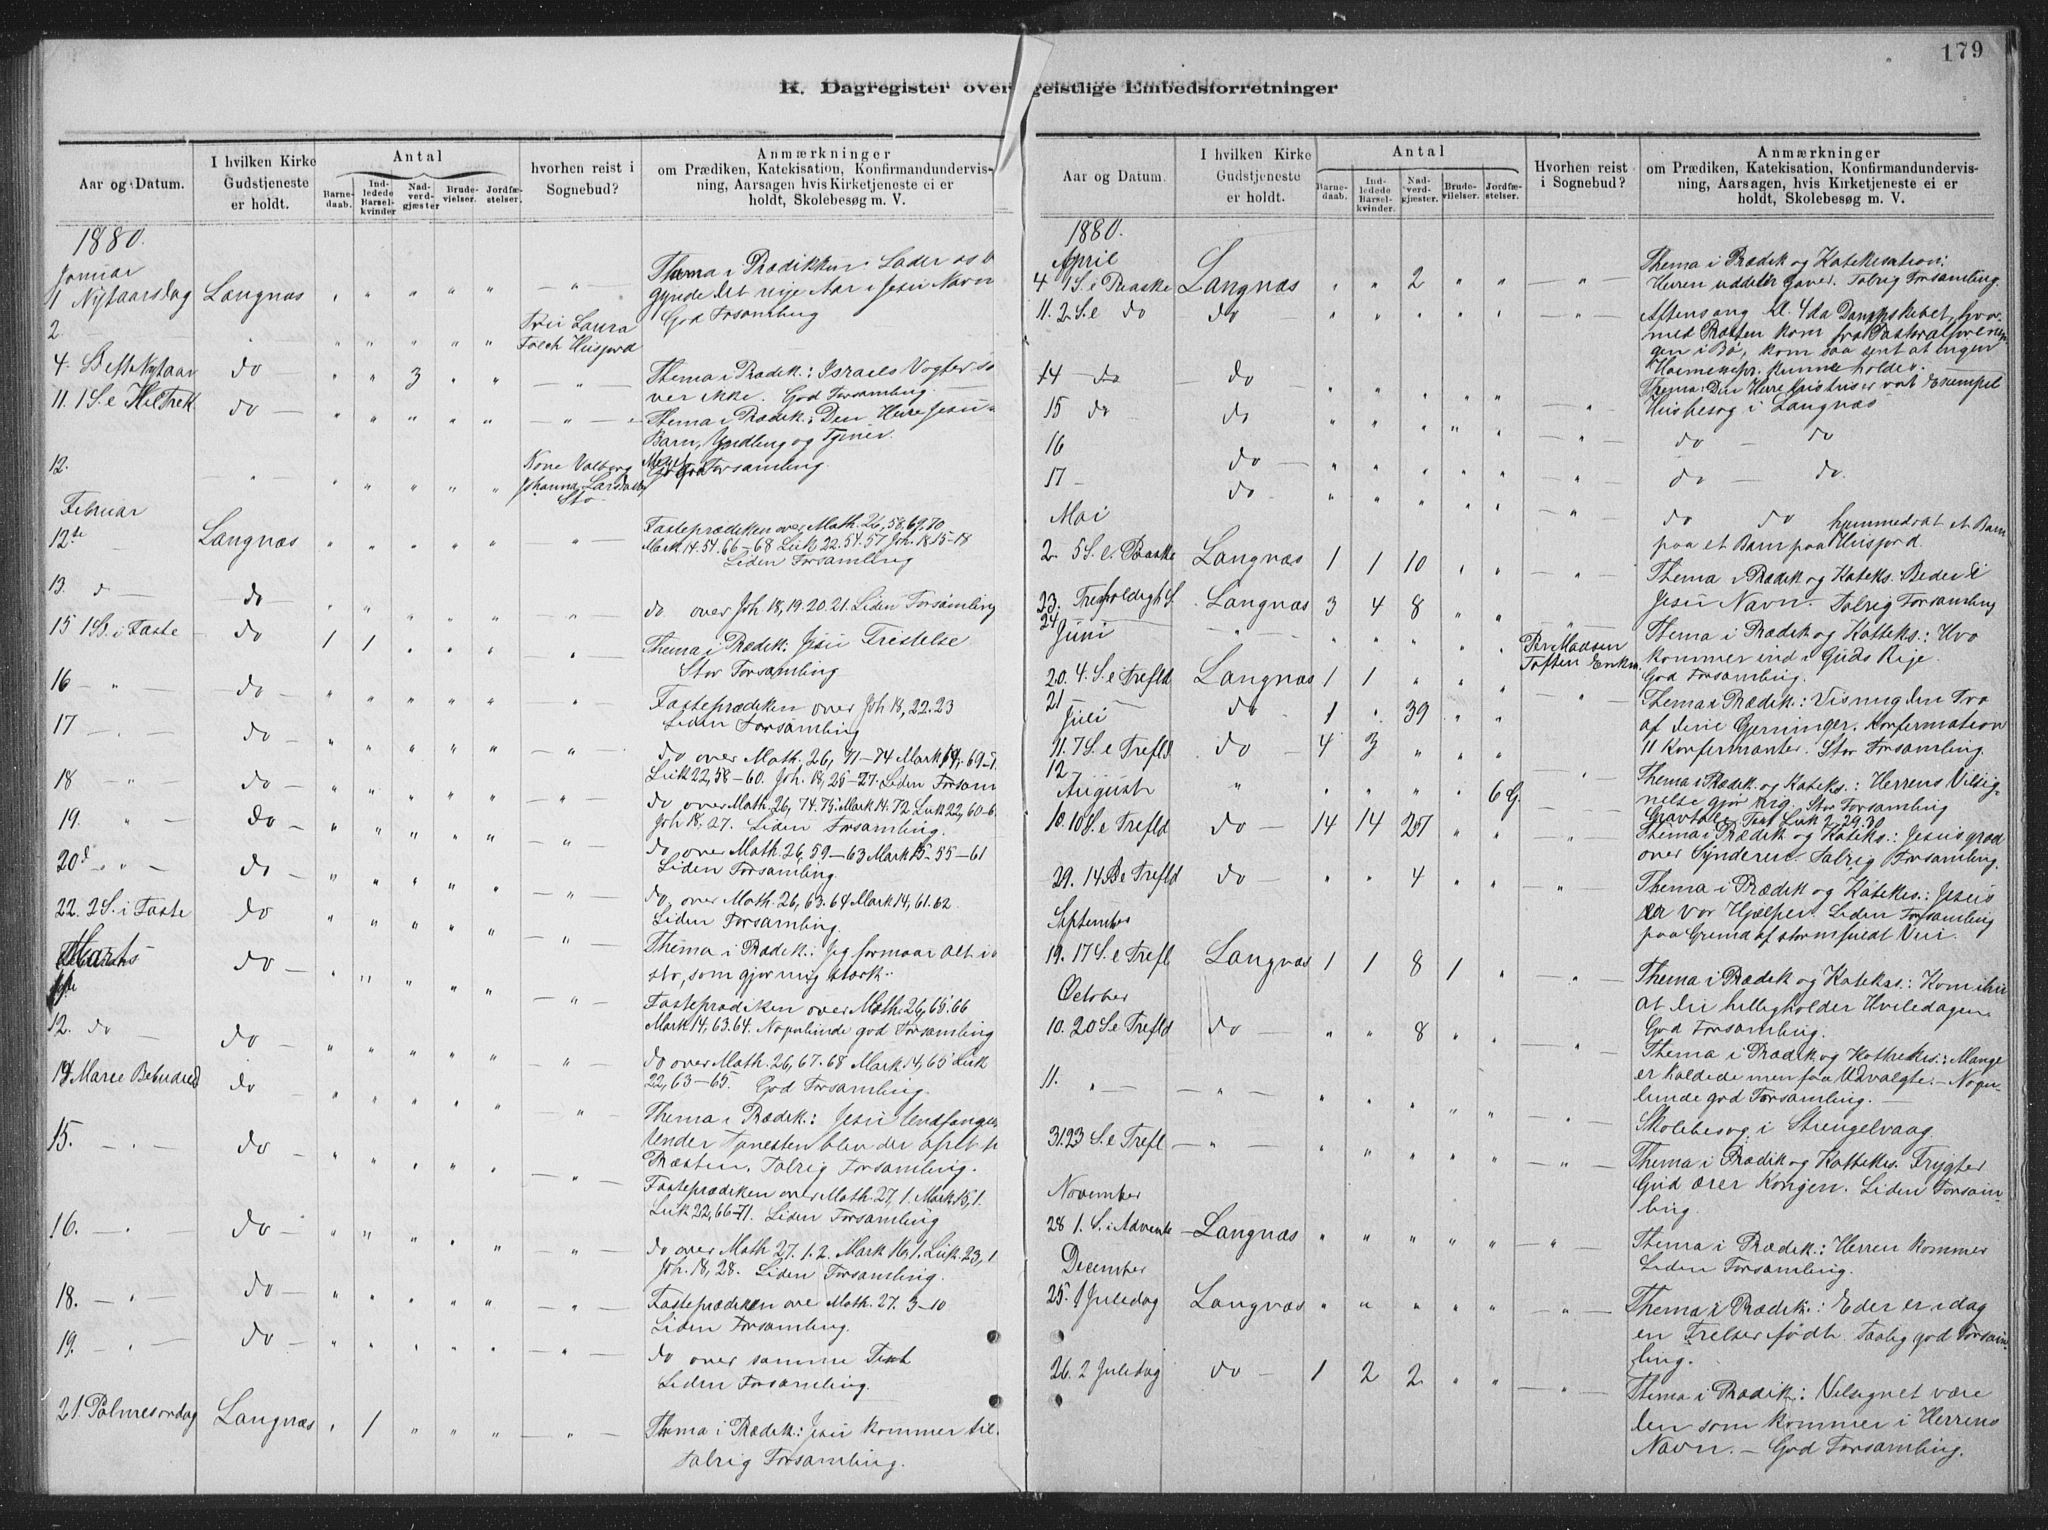 179
K. Dagregister over geistlige Embedsforretninger
Aar og Datum.
I hvilken Kirke Gudstjeneste er holdt.
Antal
Barnedaab.
Indledede Barselkvinder
Nadverdgjæster
Brudevielser.
Jordfæstelser.
hvorhen reist i Sognebud?
Anmærkninger
om Prædiken, Katekisation, Konfirmandundervisning, Aarsagen hvis Kirketjeneste ei er holdt, Skolebesøg m. V.
1880.
Januar
1 Nytaarsdag Langnæs " " " " " — " —
Thema i Prædikken: Lader os be
gynde det nye Aar i Jesu Navn
God Forsamling
2. " " " " " "
Laura
Husjord
4. do " " 3 " " — " —
Thema i Prædik.: Israels Vogter so
ver ikke. God Forsamling
11. 1 S. e HelTrek do " " " " " — " —
Thema i Prædik.: Den Herre Jesu
Barn, Yndling og Tjener.
Forsamling.
12. " " " " " "
Kone Valborg
Johanna
Stø
Februar
12te Langnæs " " " " " — " —
Fasteprædiken over Math. 26, 58, 69, 70
Mark 14. 54. 66-68 Luk 22. 54. 57 Joh. 18 15-18
Liden Forsamling
13. do " " " " " — " —
do over Joh. 18, 19. 20. 21. Liden Forsamling
15 1 S. i Faste do 1 1 " " " "
Thema i Prædik: Jesu Fristelse
Stor Forsamling
16 — " — do " " " " " — " —
Fasteprædiken over Joh 18, 22. 23
Liden Forsamling
17 — " — do " " " " " — " —
do over Math. 26, 71-74 Mark 14, 69-7
Luk 22, 58-60. Joh. 18, 25-27. Liden Forsam
18 " do " " " " " — " —
do over Math. 26, 74. 75 Mark 14. 72 Luk 22, 60-6
Joh 18, 27. Liden Forsamling.
19. " do " " " " " — " —
do over Math. 26, 59-63 Mark 15-55-61
Liden Forsamling.
20 do " " " " " — " —
do over Math. 26, 63. 64 Mark 14, 61. 62
Liden Forsamling.
22. 2 S. i Faste do " " " " " — " —
Thema i Prædik.: Jeg formaar Alt i
som gjør mig stærk.
Marts
do " " " " "
Fasteprædiken over Math. 26, 65. 66
Mark 14, 63. 64. Nogenlunde god Forsamling
12. do do " " " " " — " —
do over Math. 26, 67. 68 Mark 14, 65 Luk
22, 63-65. God Forsamling.
14 Marie Bebudels do " " " " " — " —
Thema i Prædik.: Jesu Undfangel
Præsten. Talrig Forsamling.
15. — " — do " " " " " — " —
Fasteprædiken over Math. 27, 1. Mark 15, 1.
Luk 22, 66-71. Liden Forsamling
16. — " — do " " " " " — " —
do over Math 27. 1. 2. Mark 16, 1. Luk. 23, 1
Joh. 18, 28. Liden Forsamling.
18. — " — do " " " " " — " —
Fasteprædiken ove Math. 27. 3-10
Liden Forsamling.
19. — " — do " " " " " — " —
do over samme Text
Liden Forsamling.
21 Palmesøndag Langnæs " 1 " " " — " —
Thema i Prædik.: Jesu kommer til.
Talrig Forsamling.
Aar og Datum.
I hvilken Kirke Gudstjeneste er holdt.
Antal
Barnedaab.
Indledede Barselkvinder.
Nadverdgjester.
Brudevielser.
Jordfæstelser.
Hvorhen reist i Sognebud?
Anmærkninger
om Prædiken, Katekisation, Konfirmandundervisning, Aarsagen, hvis Kirketjeneste ei er holdt, Skolebesøg m. V.
1880.
April
4 1 S. e Paaske Langnæs " " 2 " " — " —
Thema i Prædik og Katekisation:
Herren uddeler Gaver. Talrig Forsamling.
11. 2 S. e do do " " " " " — " —
Aftensang Kl. 4 da Dampskibet, hvor
med Præsten kom fra
gen i Bø, kom saa sent at ingen
kunne holdes.
Thema: Den Herre Kristus er vort Exempel
14 — do — do " " " " " "
Husbesøg i Langnæs
15 do do " " " " " "
do — do
16 do " " " " " "
do — do.
17 do " " " " " "
do do hjemmedøbt et Barn
paa et Barn paa Husjord.
Mai
2. 5 S. e. Paaske Langnæs 1 1 10 " " "
Thema i Prædik og Kateks.: Beder i
Jesu Navn. Talrig Forsamling
23. Trefoldigh S. Langnæs 3 4 8 " " "
Thema i Prædik og Kateks.: Hvo
kommer ind i Guds Rige.
God Forsamling.
24 " " " " " "
Per Madsen
Toften
Juni
20. 4. S. e Trefld Langnæs 1 1 " " " "
Thema i Prædik.: Visning den Tro
af dine Gjerninger. Konfirmation
11 Konfermanter. Stor Forsamling.
21 do 1 " 39 " "
Juli
11. 7 S. e Trefld do 4 3 " " " "
Thema i Prædik. og Kateks.: Herrens Velsig-
nelse gjør rig. Stor Forsamling
12 " " " " " 6 G.
Gravtale Text Luk 2, 29. 30
August
10. 10 S. e Trefld do 14 14 27 " " — " —
Thema i Prædik og Kateks.: Jesus græd
over Synderen. Talrig Forsamling.
29. 14 S. e Trefld do " " 4 " " — " —
Thema i Prædik og Kateks.: Jesus
er vor Hjælper. Liden Forsamling
paa Grund af stormfuldt Veir.
September
19. 17 S. e Trefl Langnæs 1 1 8 1 " — " —
Thema i Prædik og Kateks.: Kom ihu
at du helligholder Hviledagen
God Forsamling.
October
10. 20 S. e Trefld do " " 8 " " "
Thema i Prædik og Kathekes.: Mange
er kaldede men faa Udvalgte. — Nogen-
lunde god Forsamling.
11. " " " " " " " "
Skolebesøg i Strengelvaag.
31. 23 S. e Trefl " " " " " " — " —
Thema i Prædik og Katekes. Frygter
Gud ærer Kongen. Liden Forsam-
ling.
November
28 1. S. i Advente Langnæs " " " " " — " —
Thema i Prædik.: Herren kommer
Liden Forsamling.
December
25. 1 Juledag Langnæs " " " " " — " —
Thema i Prædik.: Eder er idag
en Frelser født. Taalig god Forsam-
ling.
26. 2 Juledag do 1 2 2 " " — " —
Thema i Prædik.: Velsignet være
den som kommer i Herrens
Navn. — God Forsamling.